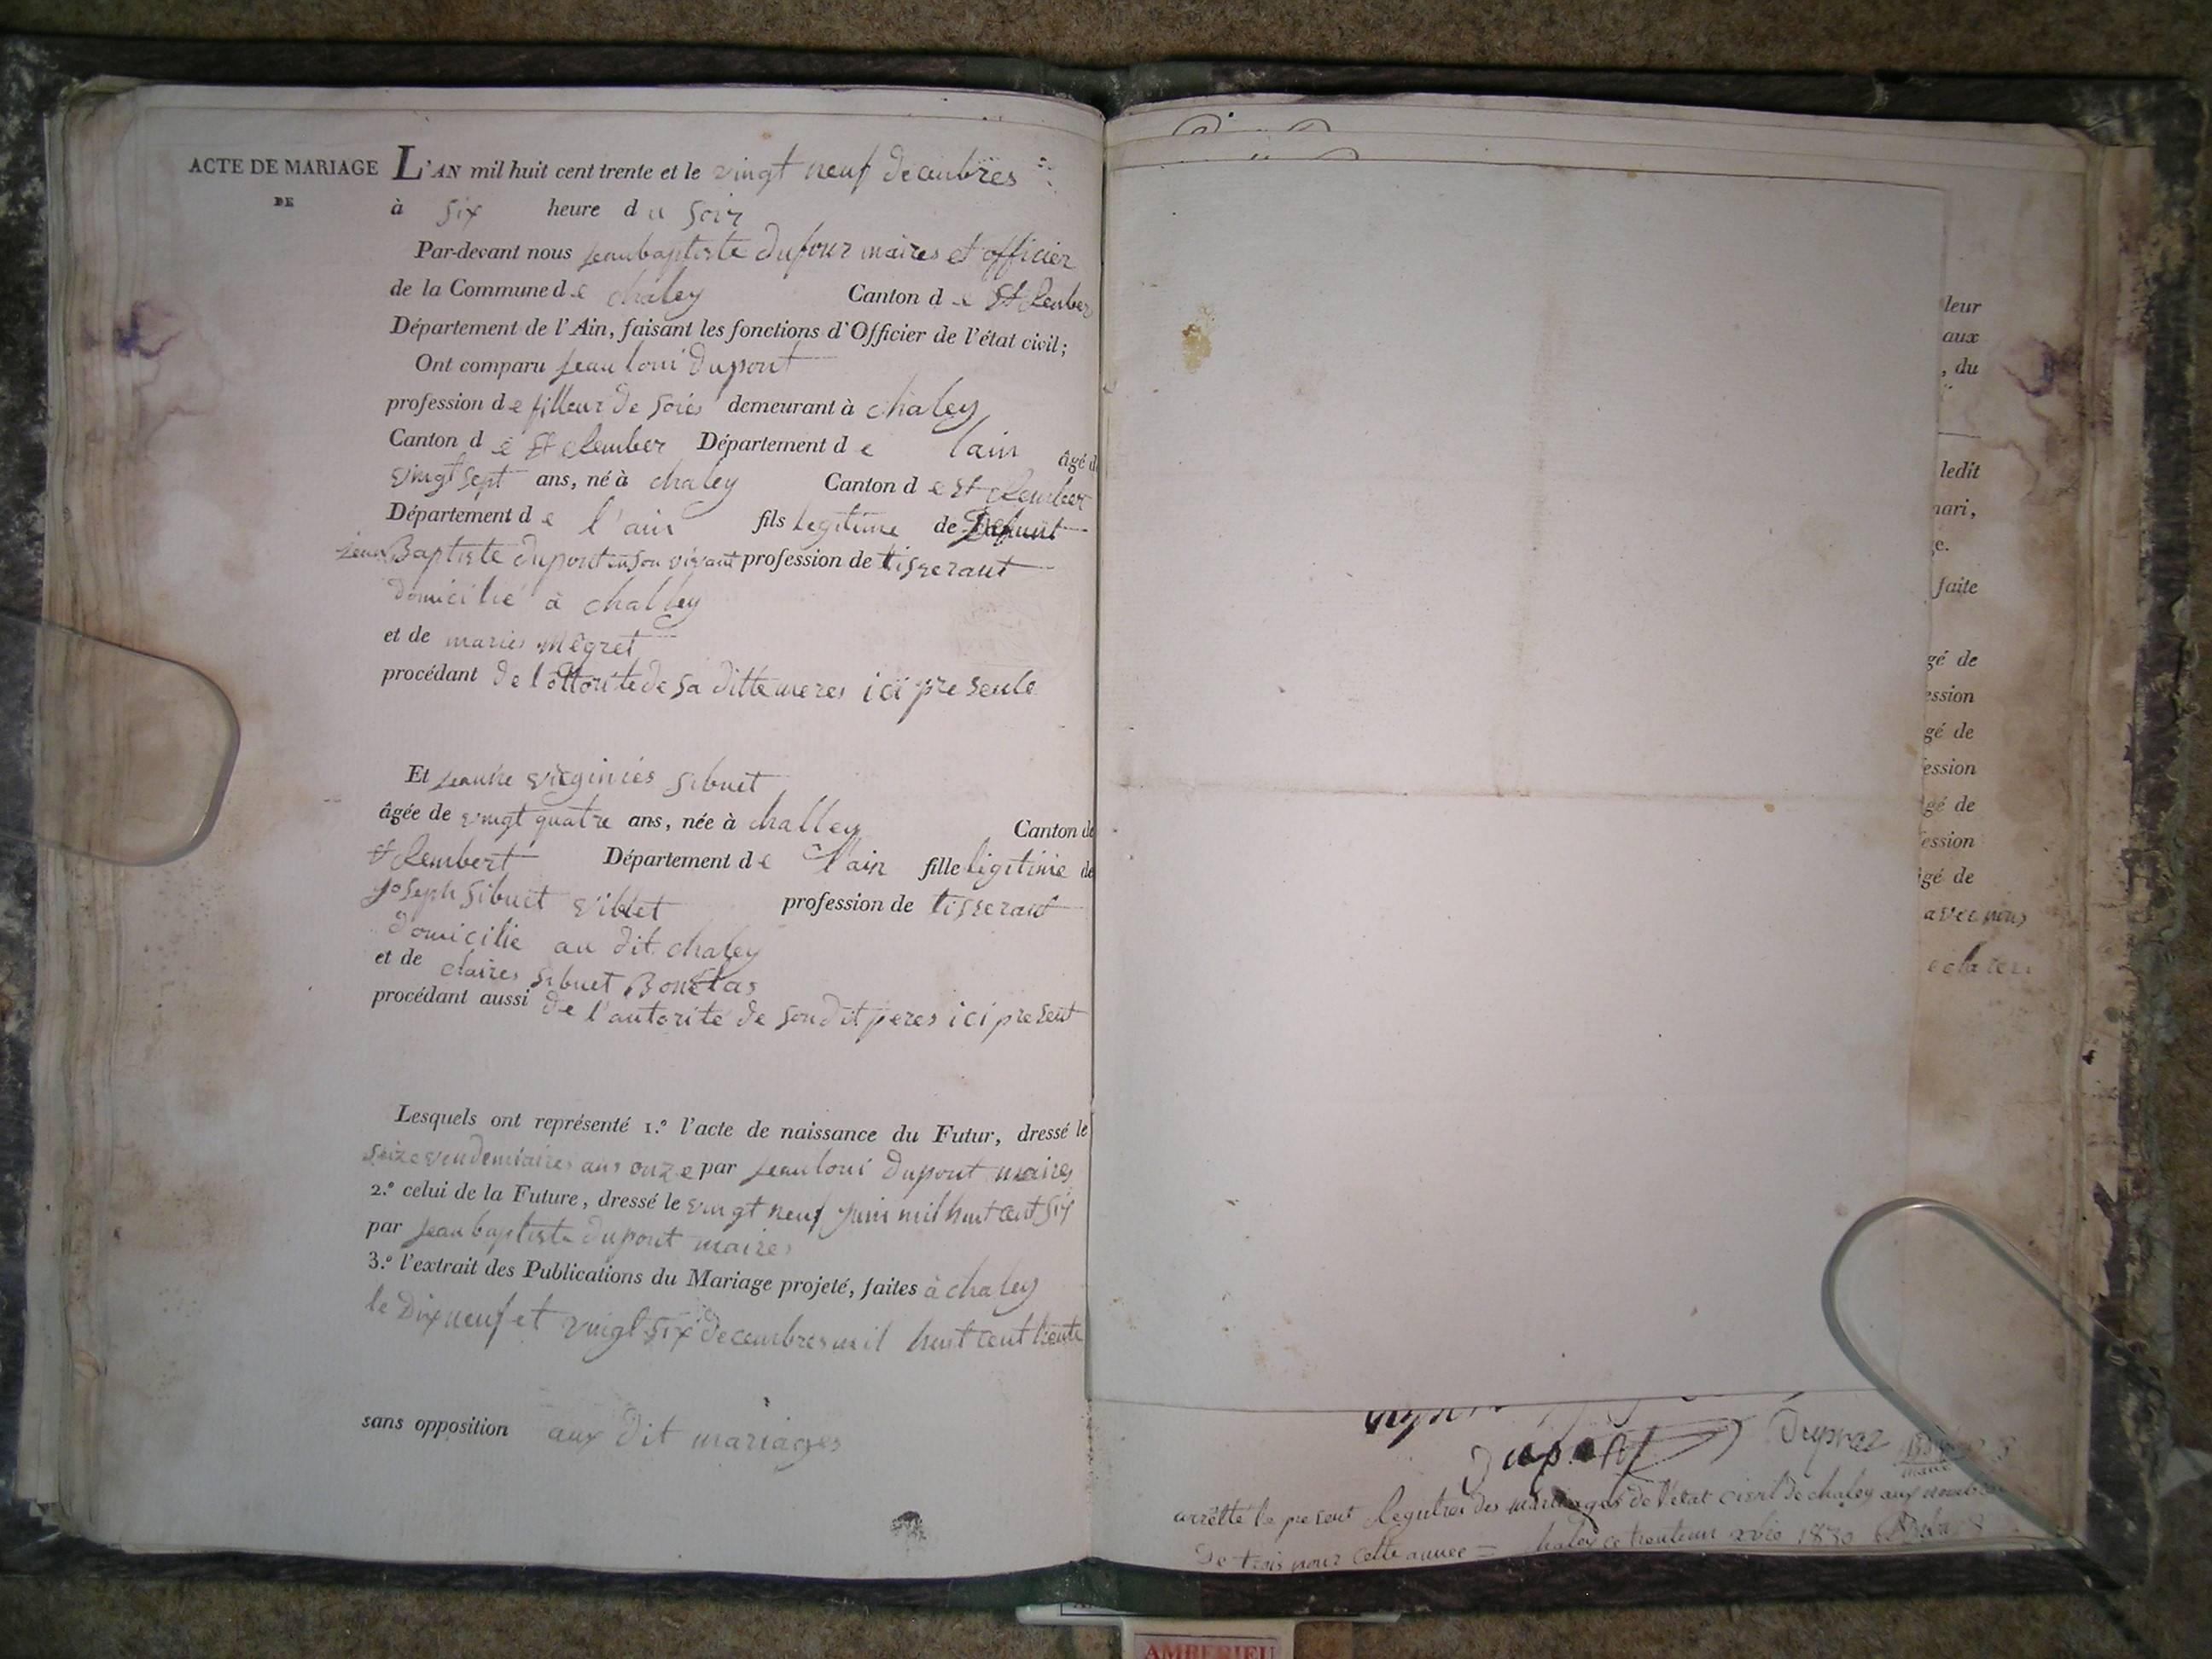 ACTE DE MARIAGE
DE
L'AN mil huit cent trente et le vingt neuf decembres
à six heure du soir
Par-devant nous jean baptiste dufour maires et officier
de la Commune de chaley Canton de St Rember
Département de l'Ain, faisant les fonctions d'Officier de l'état civil;
Ont comparu jean loui dupont
profession de filleur de soies demeurant à chaley
Canton de St Rember Département de lain âgé d
vingt sept ans, né à chaley Canton de St Rember
Département de l'ain fils legitime de Defunt
jean Baptiste dupont en son vivant profession de tisserant
domicilié à challey
et de maries Megret
procédant de l'ottorité de sa ditte meres ici presente
Et jeanne virginies sibuet
âgée de vingt quatre ans, née à challey Canton de
St Rembert Département de l'ain fille ligitime de
joseph sibuet viblet profession de tisserant
domicilie au dit chaley
et de claires sibuet
procédant aussi de l'autorité de son dit peres ici present
Lesquels ont représenté 1.º l'acte de naissance du Futur, dressé le
seize vendemiaires ans onze par jean loui dupont maires
2.º celui de la Future, dressé le vingt neuf juin mil huit cent six
par jean baptiste dupont maires
3.º l'extrait des Publications du Mariage projeté, faites à chaley
le dix neuf et vingt six decembres mil huit cent trente
sans opposition aux dit mariages
leur
aux
, du
ledit
nari,
e.
faite
gé de
ession
gé de
ession
gé de
ession
gé de
avec nous
dupont
arrêtté le present Registres des mariages de l'état civil de chaley aux nombre
De trois pour cette annee = chaley ce trente un xbre 1830
AMBERIEU